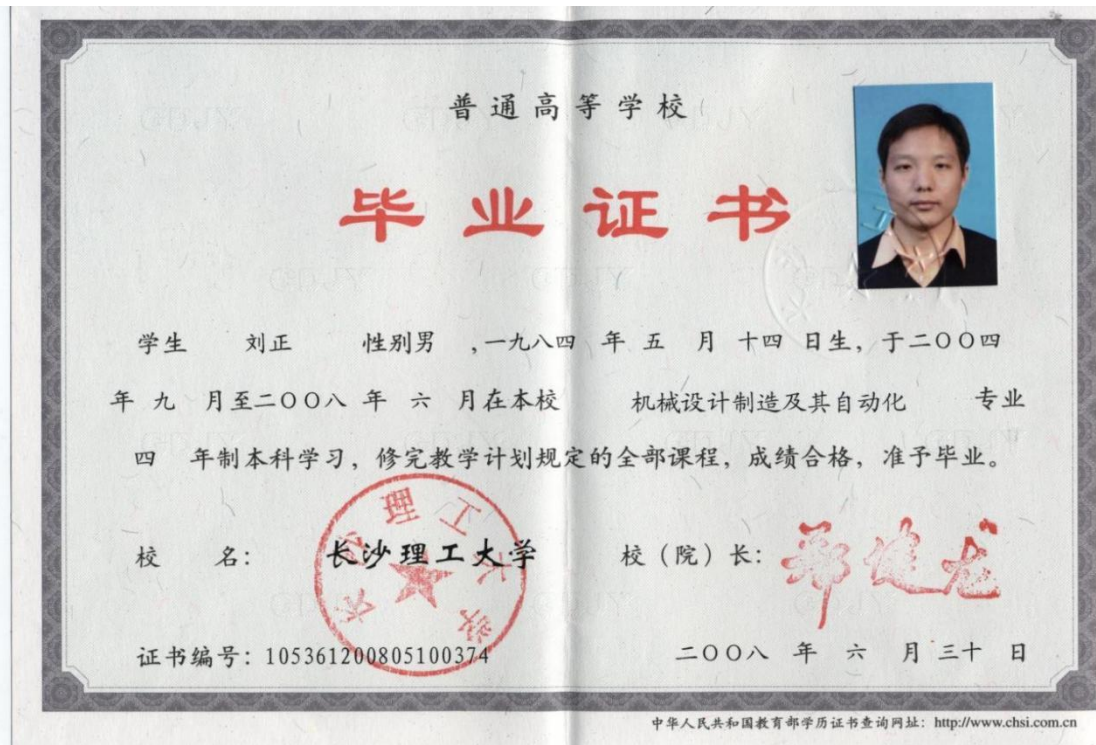 普通高等学校
毕业证书
学生 刘正 性别男 ,一九八四 年 五 月 十四 日生，于二〇〇四
年 九 月至二〇〇八 年 六 月在本校 机械设计制造及其自动化 专业
四 年制本科学习，修完教学计划规定的全部课程，成绩合格，准予毕业。
校 名： 长沙理工大学 校（院）长： 郑健龙
证书编号：105361200805100374 二〇〇八 年 六 月 三十 日
中华人民共和国教育部学历证书查询网址：http://www.chsi.com.cn